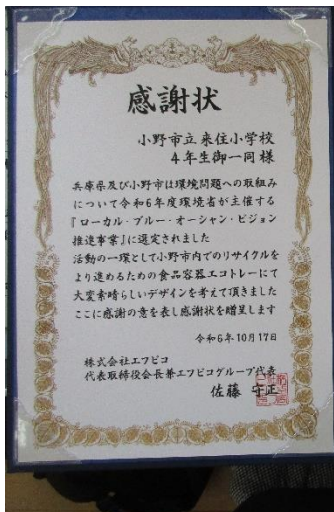 感謝状
小野市立来住小学校
4年生御一同様
兵庫県及び小野市は環境問題への取組み
について令和6年度環境省が主催する
『ローカル・ブルー・オーシャン・ビジョン
推進事業』に選定されました
活動の一環として小野市内でのリサイクルを
より進めるための食品容器エコトレーにて
大変素晴らしいデザインを考えて頂きました
ここに感謝の意を表し感謝状を贈呈します
令和6年10月17日
株式会社エフピコ
代表取締役会長兼エフピコグループ代表
佐藤 守正